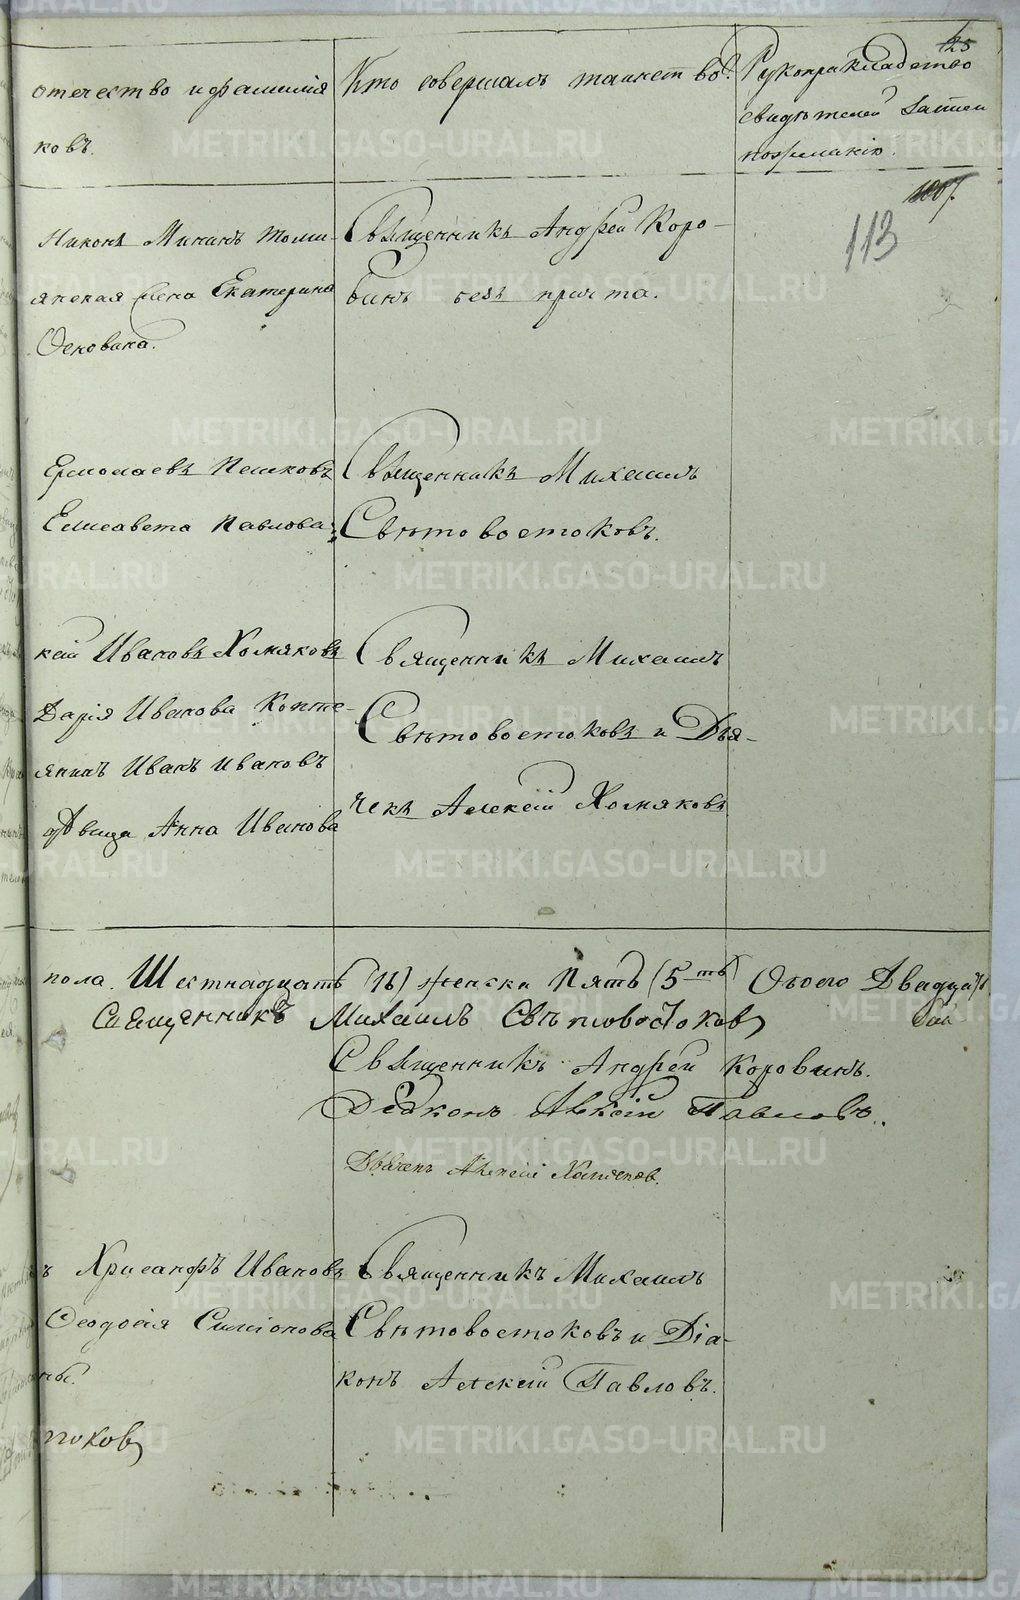 125
отечество и фамилія
ковъ.
Кто совершалъ таинство.
Рукоприкладство
свидѣтелей
пожеланію.
113
Никонъ Мининъ
Екатерина
Священникъ Андрей Коро-
винъ безъ причта.
Ермолаевъ Пешковъ
Елисавета Павлова
Священникъ Михаилъ
Свѣтовостоковъ.
кей Ивановъ Хомяковъ
Дарія Иванова
Иванъ Ивановъ
дѣвица Анна Иванова
Священникъ Михаилъ
Свѣтовостоковъ и Дья-
чекъ Алексій Хомяковъ
пола Шестнадцать (16) женска Пять (5ть)
Священникъ Михаилъ Свѣтовостоковъ
Священникъ Андрей Коровинъ.
Діаконъ Павловъ.
Дьячекъ Алексій Хомяковъ.
ъ Хрисанфъ Ивановъ
Ѳеодосія Симіонова
ны.
токовъ
Священникъ Михаилъ
Свѣтовостоковъ и Діа-
конъ Алексій Павловъ.
METRIKI.GASO-URAL.RU